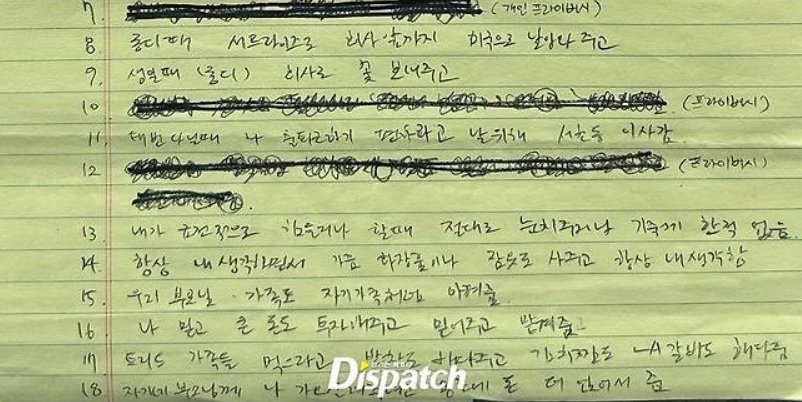 7. (개인 프라이버시)
8 콩디때 서프라이즈로 회사 앞까지 미국으로 날아와 주고
9. 생일때 (콩디) 회사로 꽃 보내주고
10 (프라이버시)
11 나 출퇴근하기 편하라고 날 위해 서초동 이사감
12 (프라이버시)
13 내가 금전적으로 힘들거나 할때 절대로 눈치주거나 기죽게 한적 없음
14. 항상 내 생각하면서 가끔 화장품이나 잠옷도 사주고 항상 내 생각함
15. 우리 부모님 · 가족도 자기가족처럼 아껴줌
16 나 믿고 큰 돈도 투자해주고 믿어주고 맡겨줌
17 가족들 먹으라고 해다주고 김치찜도 LA갈비도 해다줌
18. 자기네 부모님께 나 돈 더 줌
Dispatch